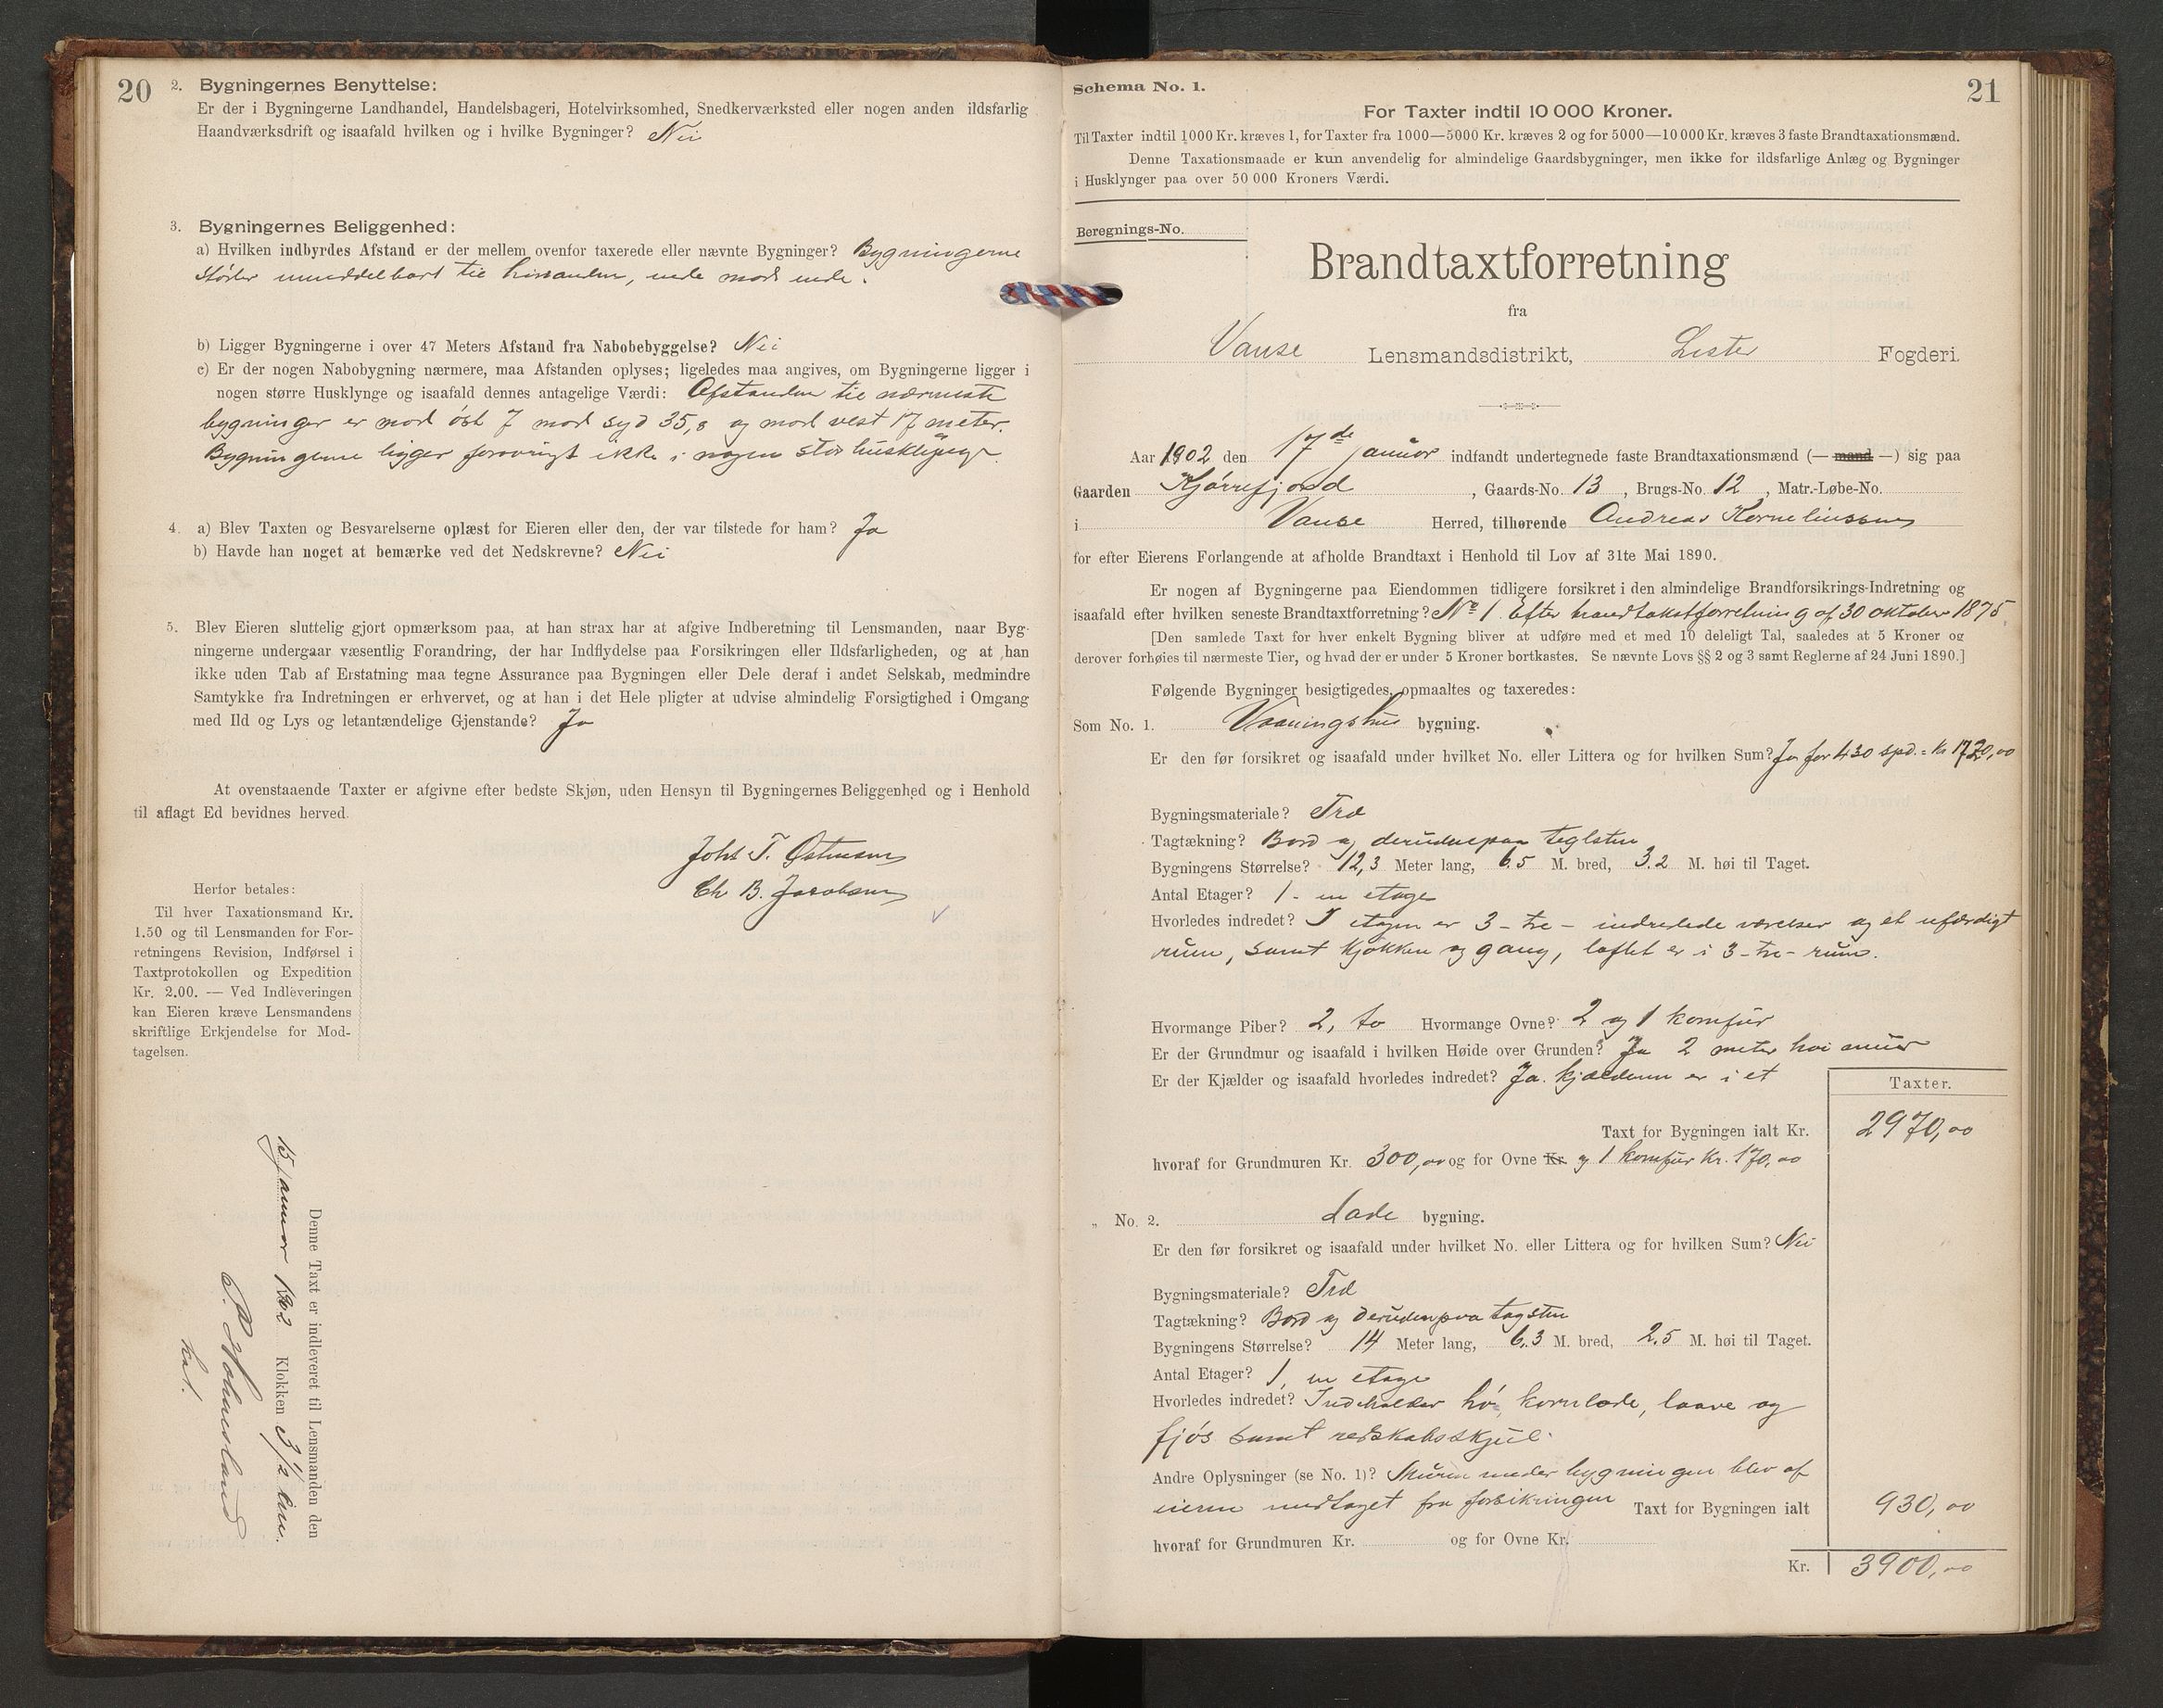 20
2. Bygningernes Benyttelse:
Er der i Bygningerne Landhandel, Handelsbageri, Hotelvirksomhed, Snedkerværksted eller nogen anden ildsfarlig
Haandværksdrift og isaafald hvilken og i hvilke Bygninger? Nei
3. Bygningernes Beliggenhed:
a) Hvilken indbyrdes Afstand er der mellem ovenfor taxerede eller nævnte Bygninger? Bygningerne
støder umiddelbart til hinanden, ende mod ende.
b) Ligger Bygningerne i over 47 Meters Afstand fra Nabobebyggelse? Nei
c) Er der nogen Nabobygning nærmere, maa Afstanden oplyses; ligeledes maa angives, om Bygningerne ligger i
nogen større Husklynge og isaafald dennes antagelige Værdi: Afstanden til nærmeste
bygninger er mod øst 7 mod syd 35,8 og mod vest 17 meter.
Bygningerne ligger forøvrigt ikke i nogen stor husklynge.
4. a) Blev Taxten og Besvarelserne oplæst for Eieren eller den, der var tilstede for ham? Ja
b) Havde han noget at bemærke ved det Nedskrevne? Nei
5. Blev Eieren sluttelig gjort opmærksom paa, at han strax har at afgive Indberetning til Lensmanden, naar Byg-
ningerne undergaar væsentlig Forandring, der har Indflydelse paa Forsikringen eller Ildsfarligheden, og at han
ikke uden Tab af Erstatning maa tegne Assurance paa Bygningen eller Dele deraf i andet Selskab, medmindre
Samtykke fra Indretningen er erhvervet, og at han i det Hele pligter at udvise almindelig Forsigtighed i Omgang
med Ild og Lys og letantændelige Gjenstande? Ja
At ovenstaaende Taxter er afgivne efter bedste Skjøn, uden Hensyn til Bygningernes Beliggenhed og i Henhold
til aflagt Ed bevidnes herved.
Joh T. Østensen
Ch B. Jacobsen
Herfor betales:
Til hver Taxationsmand Kr.
1.50 og til Lensmanden for For-
retningens Revision, Indførsel i
Taxtprotokollen og Expedition
Kr. 2.00. — Ved Indleveringen
kan Eieren kræve Lensmandens
skriftlige Erkjendelse for Mod-
tagelsen.
Denne Taxt er indleveret til Lensmanden den
15 januar 1902 Klokken 3 1/2 em.
Schema No. 1.
21
For Taxter indtil 10 000 Kroner.
Til Taxter indtil 1000 Kr. kræves 1, for Taxter fra 1000—5000 Kr. kræves 2 og for 5000—10 000 Kr. kræves 3 faste Brandtaxationsmænd.
Denne Taxationsmaade er kun anvendelig for almindelige Gaardsbygninger, men ikke for ildsfarlige Anlæg og Bygninger
i Husklynger paa over 50 000 Kroners Værdi.
Beregnings-No.
Brandtaxtforretning
fra
Vanse Lensmandsdistrikt, Lister Fogderi.
Aar 1902 den 17de januar indfandt undertegnede faste Brandtaxationsmænd (— mand —) sig paa
Gaarden Kjørrefjord, Gaards-No. 13, Brugs-No. 12, Matr.-Løbe-No.
i Vanse Herred, tilhørende Andreas Korneliussen
for efter Eierens Forlangende at afholde Brandtaxt i Henhold til Lov af 31te Mai 1890.
Er nogen af Bygningerne paa Eiendommen tidligere forsikret i den almindelige Brandforsikrings-Indretning og
isaafald efter hvilken seneste Brandtaxtforretning? No 1. Efter brandtakstforretning af 30 oktober 1875.
[Den samlede Taxt for hver enkelt Bygning bliver at udføre med et med 10 deleligt Tal, saaledes at 5 Kroner og
derover forhøies til nærmeste Tier, og hvad der er under 5 Kroner bortkastes. Se nævnte Lovs §§ 2 og 3 samt Reglerne af 24 Juni 1890.]
Følgende Bygninger besigtigedes, opmaaltes og taxeredes:
Som No. 1. Vaaningshus bygning.
Er den før forsikret og isaafald under hvilket No. eller Littera og for hvilken Sum? Ja for 430 spd. = kr 1720,00
Bygningsmateriale? Træ
Tagtækning? Bord og derudenpaa teglsten
Bygningens Størrelse? 12,3 Meter lang, 6.5 M. bred, 3.2 M. høi til Taget.
Antal Etager? 1 - en etage
Hvorledes indredet? I etagen er 3 - tre - indredede værelser og et ufærdigt
rum, samt kjøkken og gang, loftet er i 3 - tre - rum.
Hvormange Piber? 2, to Hvormange Ovne? 2 og 1 komfur
Er der Grundmur og isaafald i hvilken Høide over Grunden? Ja 2 meter høi mur
Er der Kjælder og isaafald hvorledes indredet? Ja. kjælderen er i et
Taxter.
Taxt for Bygningen ialt Kr. 2970,00
hvoraf for Grundmuren Kr. 300,00 og for Ovne Kr. og 1 komfur Kr. 170,00
„ No. 2. Lade bygning.
Er den før forsikret og isaafald under hvilket No. eller Littera og for hvilken Sum? Nei
Bygningsmateriale? Træ
Tagtækning? Bord og derudenpaa tagsten
Bygningens Størrelse? 14 Meter lang, 6.3 M. bred, 2.5 M. høi til Taget.
Antal Etager? 1, en etage
Hvorledes indredet? Indeholder hø, kornlade, laave og
fjøs samt redskabsskjul.
Andre Oplysninger (se No. 1)? Muren under bygningen blev af
eieren undtaget fra forsikringen Taxt for Bygningen ialt 930,00
hvoraf for Grundmuren Kr. og for Ovne Kr.
Kr. 3900,00